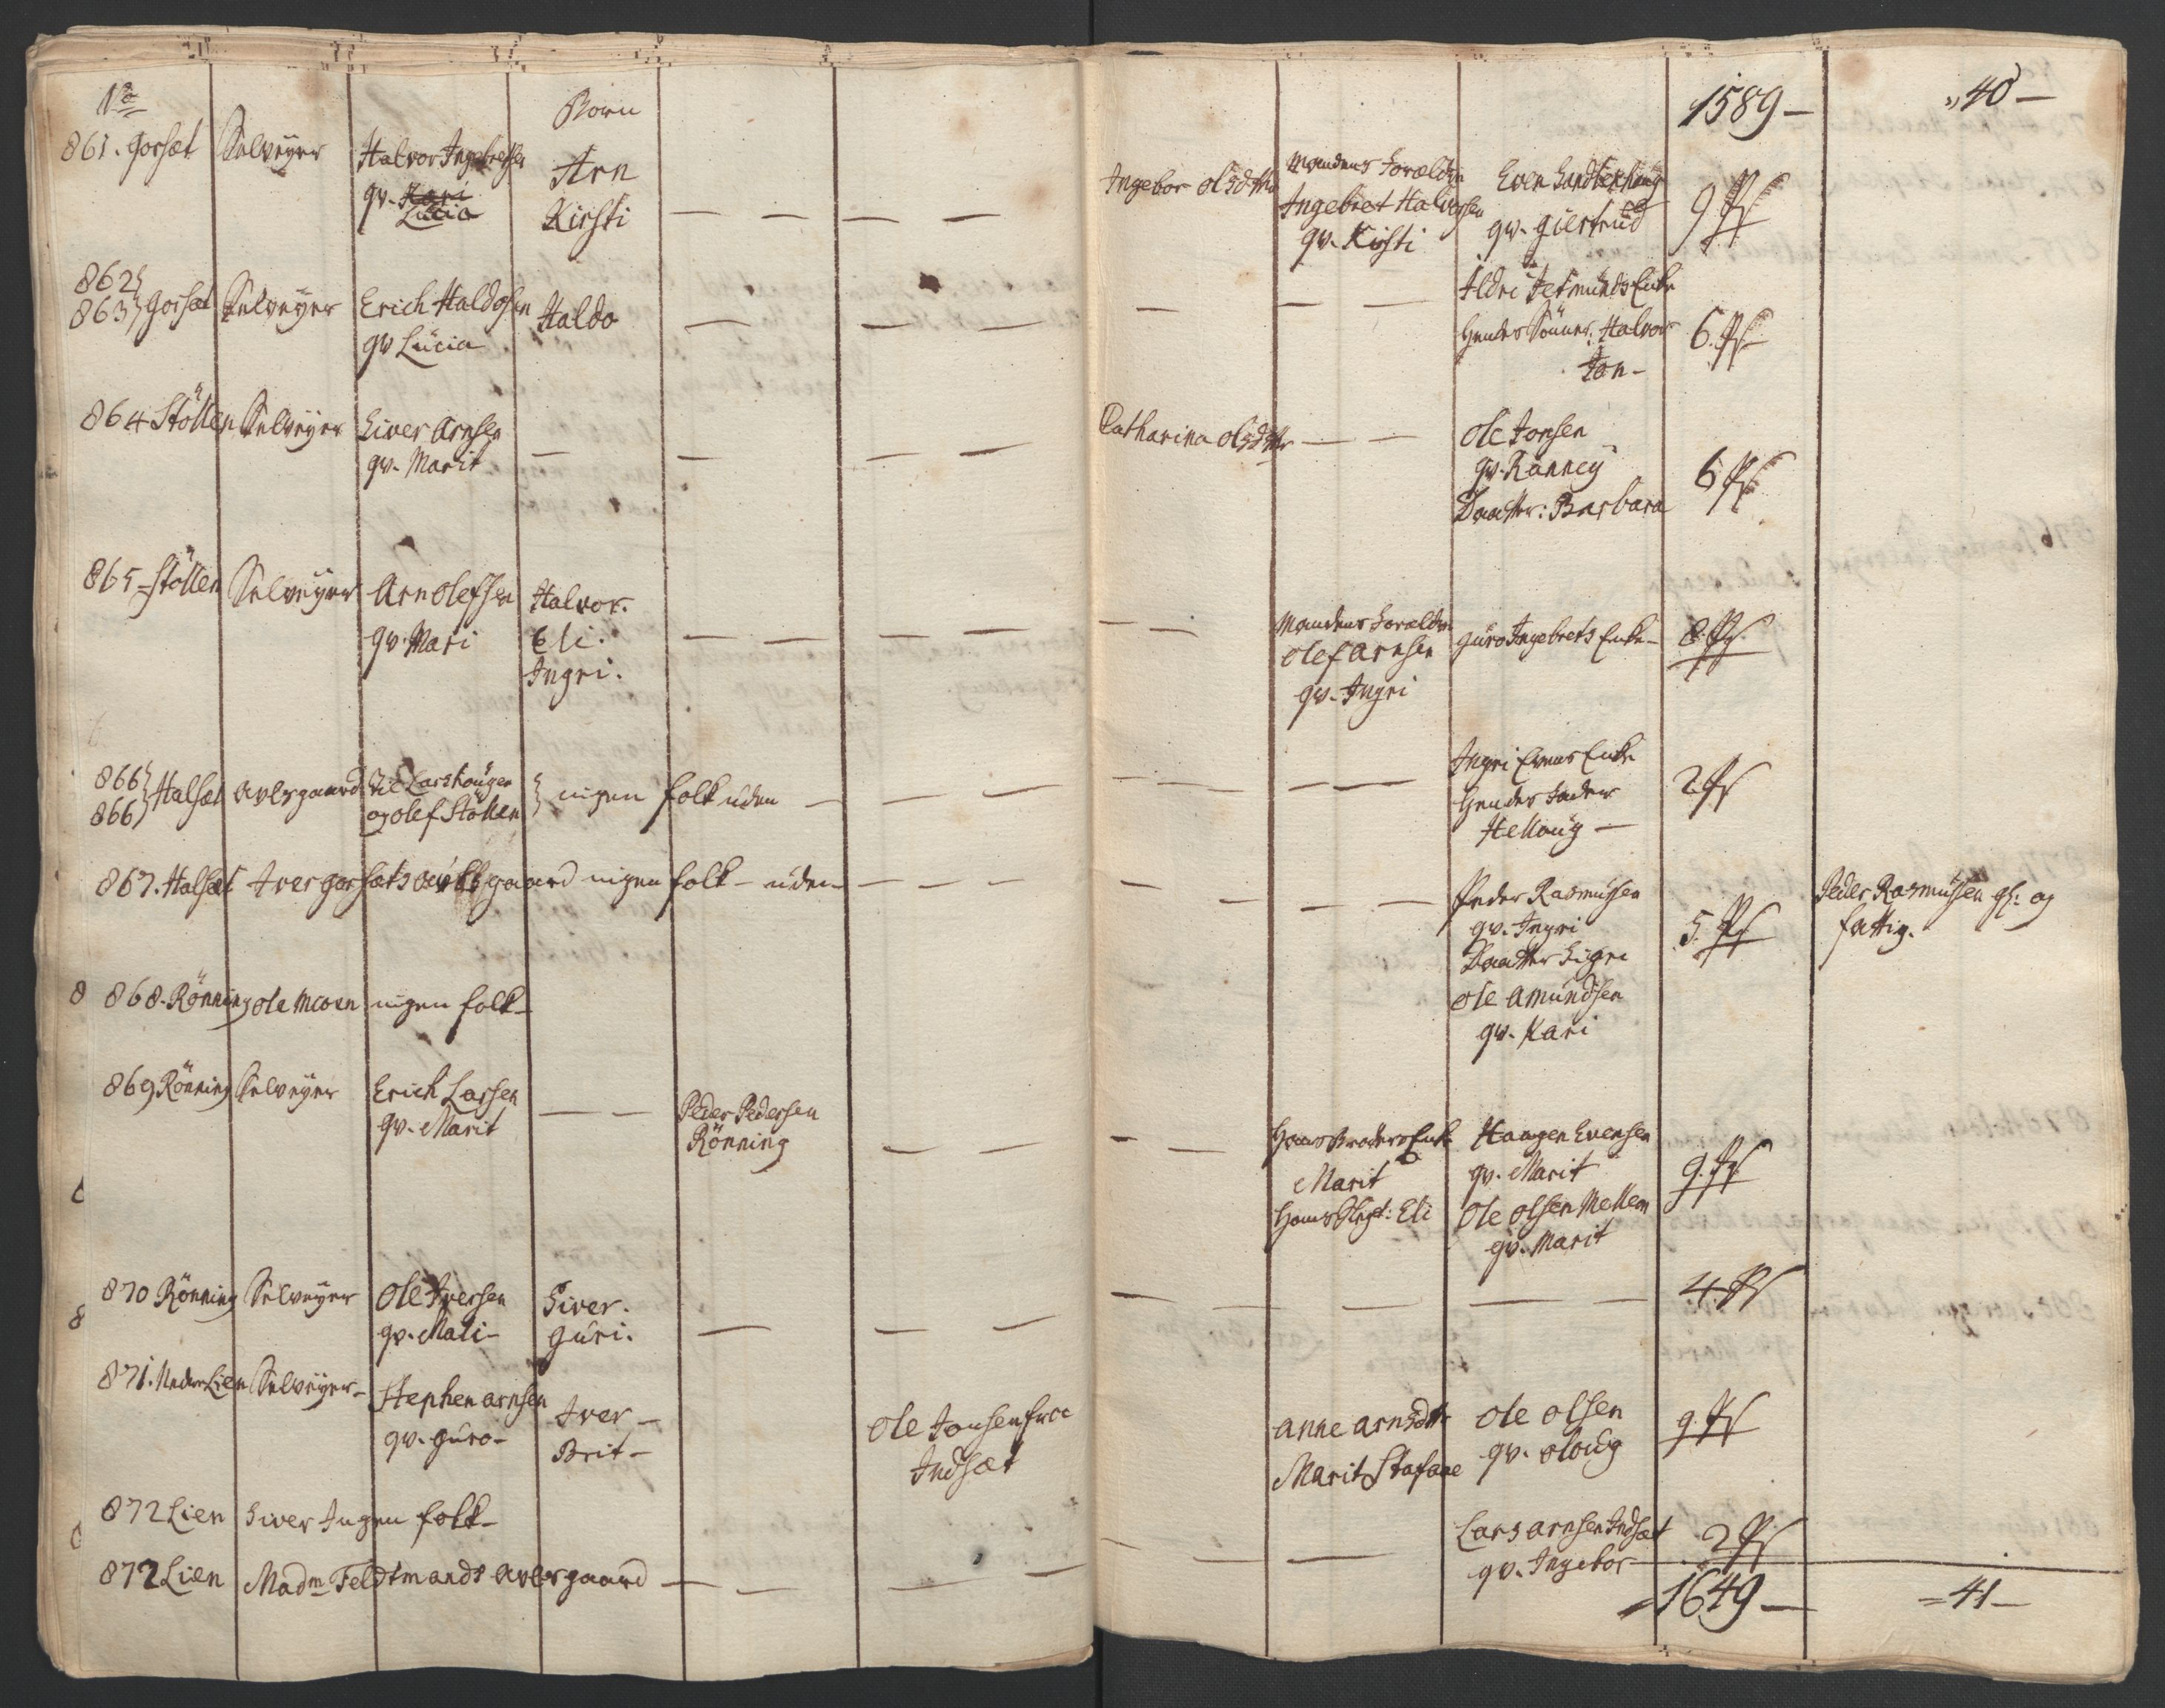 No
Børn
1589 —
„ 40 —
861. Gorset Selveyer Halvor Ingebretsen
gv. Kari
Lucia
Arn
Kirsti — — — —
Ingebor Olsdttr
Mandens Forældre
Ingebret Halvorsen
gv. Kirsti
Even
gv. Giertrud
9 Ps
862
863 Gorset Selveyer Erich Haldosen
gv Lucia
Haldo — — —
— — —
Ildri Enke
Hendes Sönner: Halvor
Jon —
6. Ps
864 Stöllen Selveyer Siver Arnsen
gv. Marit — — — —
Catharina Olsdttr — —
Ole Jonsen
gv. Ranney
Daatter: Barbara
6 Ps
865 – Stöllen Selveyer Arn Olefsen
gv. Mari
Halvor.
Eli.
Ingri. — — — —
— —
Mandens Forældre
Olef Arnsen
gv. Ingri
Guro Ingebrets Enke —
8. Ps.
866
866 Halset Avlsgaard til Larshougen
og Olef Stöllen
ingen folk uden — — —
— — — —
Ingri Evens Enke
Hendes
Helloug —
2. Ps
867. Halset Iver Gorsets avlsgaard ingen folk – uden — — —
— — — —
Peder Rasmussen
gv. Ingri
Daatter Sigri
Ole Amundsen
gv. Kari
5. Ps
Peder Rasmussen gl: og
fattig.
868. Rönning Ole Moen ingen folk —
869 Rönning Selveyer Erich Larsen
gv. Marit — —
Peder Pedersen
Rönning — —
— —
Hans Broders Enke
Marit
Hans Slegt: Eli
Haagen Evensen
gv. Marit
Ole Olsen Mellem
gv. Marit
9. Ps
870 Rönning Selveyer Ole Iversen
gv. Mali —
Siver.
Guri. — — —
— — — — —
4. Ps
871. Nedre Lien Selveyer — Stephen Arnsen
gv. Guro —
Iver —
Brit —
Ole Jonsen fra
Indset
Anne Arnsdttr
Marit Stafane
Ole Olsen
gv. Oloug
9. Ps
872 Lien Siver Ingen folk —
872 Lien Madm Feldtmands avlsgaard — — — —
— — —
Lars Arnsen Indset
gv. Ingebor —
2. Ps
= 1649 —
= 41 —